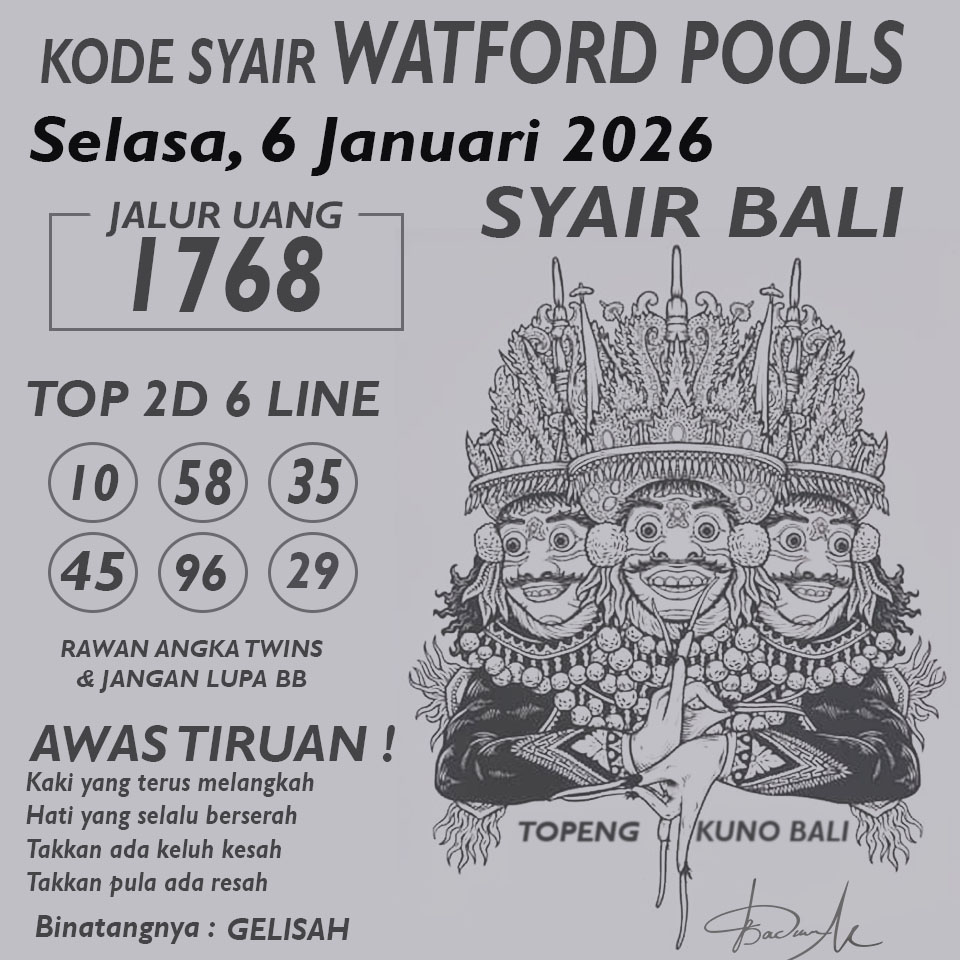 KODE SYAIR WATFORD POOLS
Selasa, 6 Januari 2026
SYAIR BALI
JALUR UANG
1768
TOP 2D 6 LINE
10 58 35
45 96 29
RAWAN ANGKA TWINS
& JANGAN LUPA BB
AWAS TIRUAN !
Kaki yang terus melangkah
Hati yang selalu berserah
Takkan ada keluh kesah
Takkan pula ada resah
Binatangnya : GELISAH
TOPENG KUNO BALI